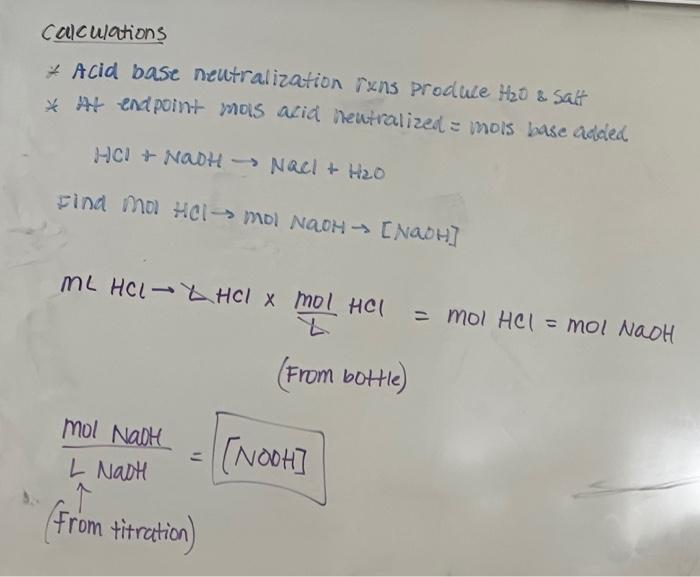 Calculations
* Acid base neutralization rxns produce H2O & salt
* At endpoint mols acid neutralized = mols base added
HCl + NaOH → NaCl + H2O
Find mol HCl → mol NaOH → [NaOH]
mL HCl → L HCl x mol HCl / L = mol HCl = mol NaOH
(From bottle)
mol NaOH / L NaOH = [NaOH]
↑
(From titration)